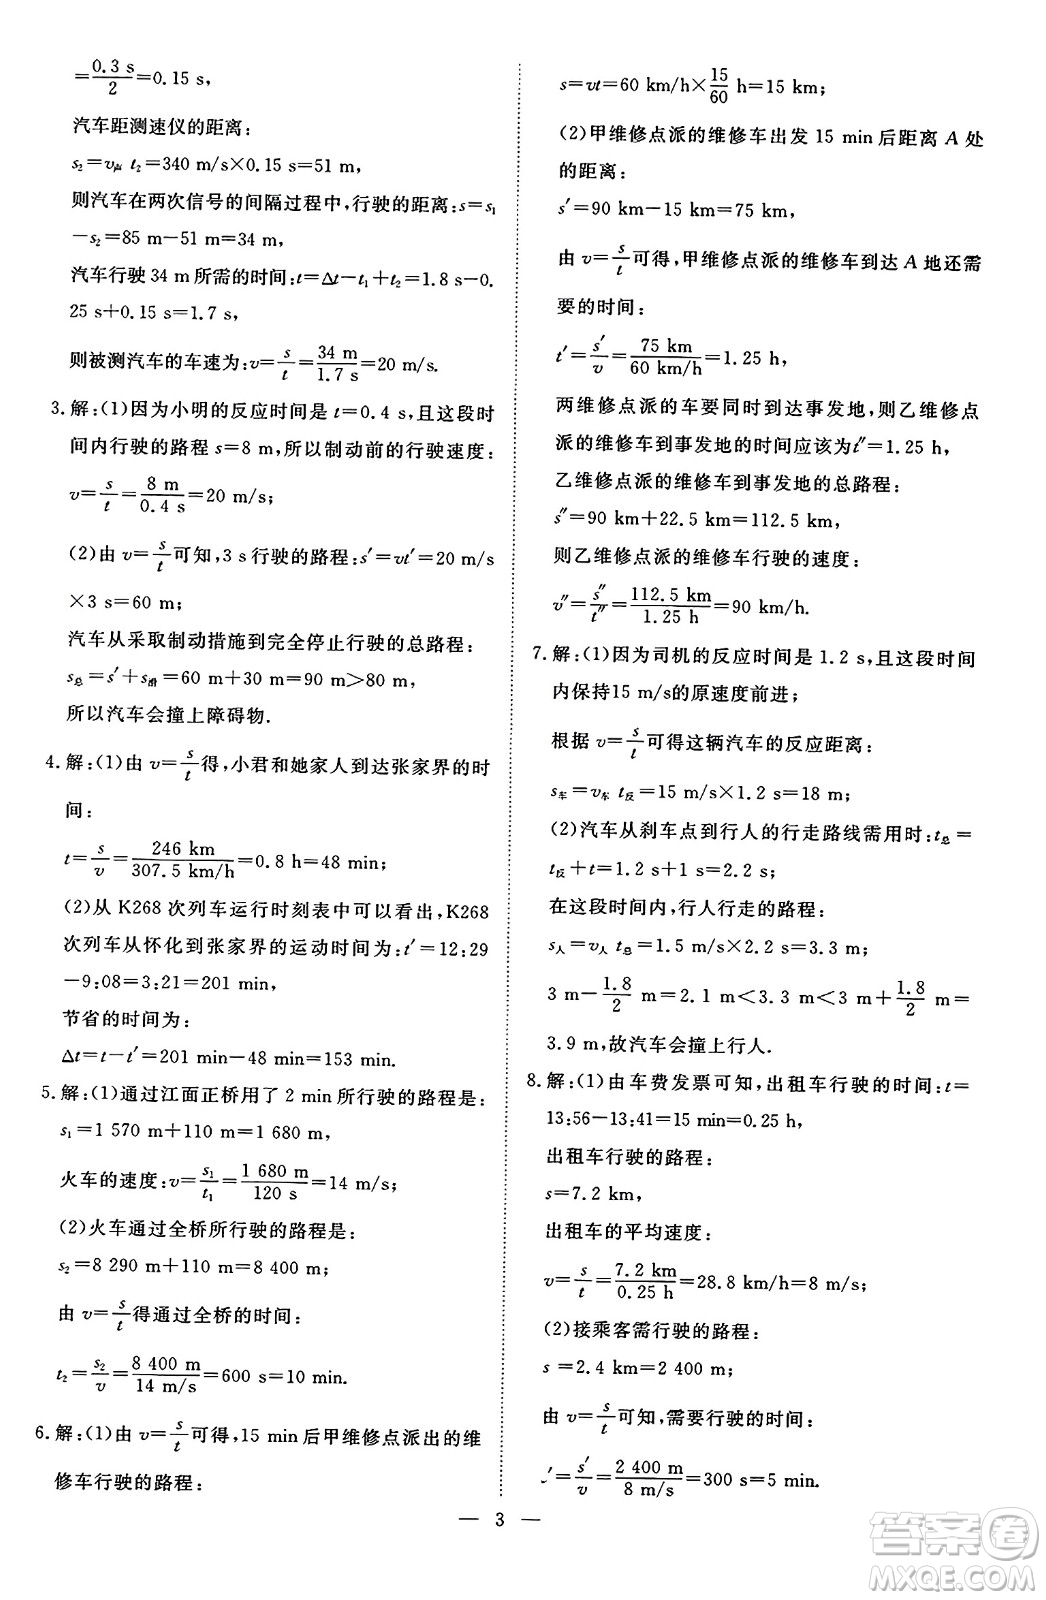 =0.3 s/2=0.15 s,
汽车距测速仪的距离:
s₂=v声 t₂=340 m/s×0.15 s=51 m,
则汽车在两次信号的间隔过程中,行驶的距离:s=s₁
-s₂=85 m-51 m=34 m,
汽车行驶34 m所需的时间:t=Δt-t₁+t₂=1.8 s-0.
25 s+0.15 s=1.7 s,
则被测汽车的车速为:v=s/t=34 m/1.7 s=20 m/s.
3.解:(1)因为小明的反应时间是 t=0.4 s,且这段时
间内行驶的路程 s=8 m,所以制动前的行驶速度:
v=s/t=8 m/0.4 s=20 m/s;
(2)由 v=s/t可知,3 s行驶的路程:s′=vt′=20 m/s
×3 s=60 m;
汽车从采取制动措施到完全停止行驶的总路程:
s总=s′+s滑=60 m+30 m=90 m>80 m,
所以汽车会撞上障碍物.
4.解:(1)由 v=s/t得,小君和她家人到达张家界的时
间:
t=s/v=246 km/307.5 km/h=0.8 h=48 min;
(2)从 K268 次列车运行时刻表中可以看出,K268
次列车从怀化到张家界的运动时间为:t′=12:29
-9:08=3:21=201 min,
节省的时间为:
Δt=t-t′=201 min-48 min=153 min.
5.解:(1)通过江面正桥用了 2 min所行驶的路程是:
s₁=1 570 m+110 m=1 680 m,
火车的速度:v=s₁/t₁=1 680 m/120 s=14 m/s;
(2)火车通过全桥所行驶的路程是:
s₂=8 290 m+110 m=8 400 m,
由 v=s/t得通过全桥的时间:
t₂=s₂/v=8 400 m/14 m/s=600 s=10 min.
6.解:(1)由 v=s/t可得,15 min后甲维修点派出的维
修车行驶的路程:
s=vt=60 km/h×15/60 h=15 km;
(2)甲维修点派的维修车出发 15 min后距离 A 处
的距离:
s′=90 km-15 km=75 km,
由 v=s/t可得,甲维修点派的维修车到达 A 地还需
要的时间:
t′=s′/v=75 km/60 km/h=1.25 h,
两维修点派的车要同时到达事发地,则乙维修点
派的维修车到事发地的时间应该为t″=1.25 h,
乙维修点派的维修车到事发地的总路程:
s″=90 km+22.5 km=112.5 km,
则乙维修点派的维修车行驶的速度:
v″=s″/t″=112.5 km/1.25 h=90 km/h.
7.解:(1)因为司机的反应时间是1.2 s,且这段时间
内保持15 m/s的原速度前进;
根据 v=s/t可得这辆汽车的反应距离:
s车=v车 t反=15 m/s×1.2 s=18 m;
(2)汽车从刹车点到行人的行走路线需用时:t总=
t反+t=1.2 s+1 s=2.2 s;
在这段时间内,行人行走的路程:
s人=v人 t总=1.5 m/s×2.2 s=3.3 m,
3 m-1.8/2 m=2.1 m<3.3 m<3 m+1.8/2 m=
3.9 m,故汽车会撞上行人.
8.解:(1)由车费发票可知,出租车行驶的时间:t=
13:56-13:41=15 min=0.25 h,
出租车行驶的路程:
s=7.2 km,
出租车的平均速度:
v=s/t=7.2 km/0.25 h=28.8 km/h=8 m/s;
(2)接乘客需行驶的路程:
s=2.4 km=2 400 m;
由 v=s/t可知,需要行驶的时间:
′=s′/v=2 400 m/8 m/s=300 s=5 min.
— 3 —
答案卷
MXQE.COM